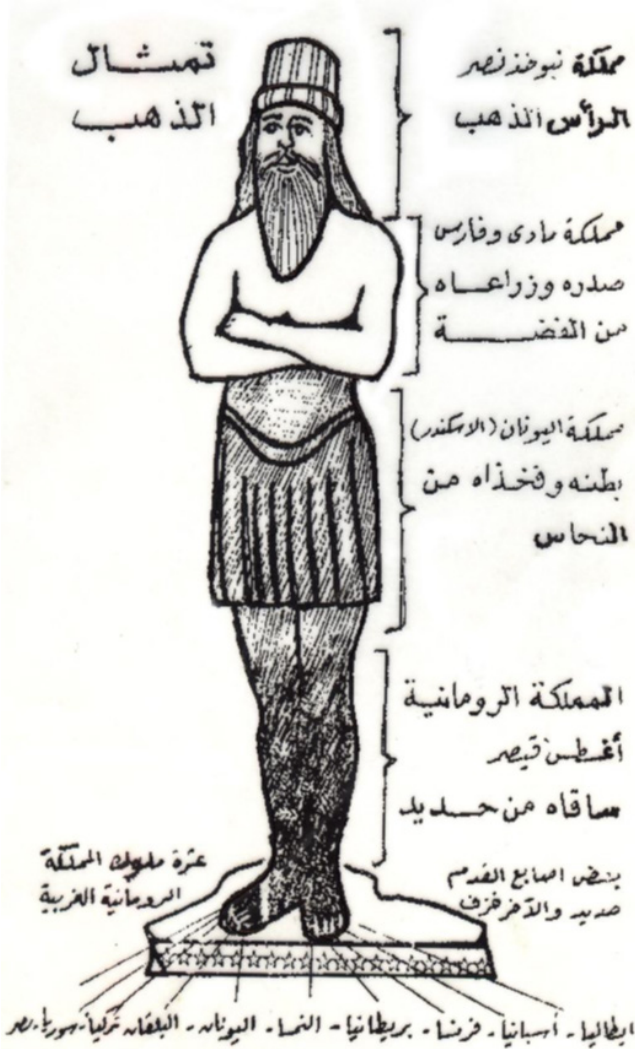 تمثال
الذهب
مملكة نبوخذنصر
الرأس الذهب
مملكة مادى وفارس
صدره وزراعاه
من الفضة
مملكة اليونان (الاسكندر)
بطنه وفخذاه من
النحاس
المملكة الرومانية
أغسطس قيصر
ساقاه من حديد
عشرة ملوك المملكة
الرومانية الغربية
بعض اصابع القدم
حديد والآخر خزف
ايطاليا - أسبانيا - فرنسا - بريطانيا - النمسا - اليونان - البلقان - تركيا - سوريا - مصر